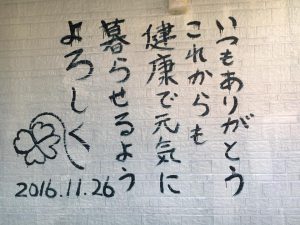 いつもありがとう
これからも
健康で元気に
暮らせるよう
よろしく
2016.11.26